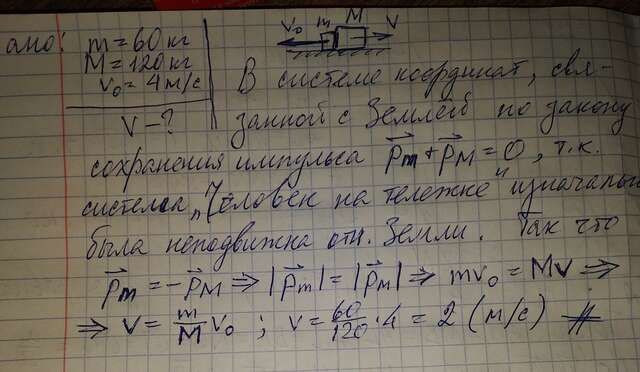 ано: m = 60 кг
M = 120 кг
v₀ = 4 м/с
V - ?
V₀ m M V
В системе координат, свя-
занной с Землёй по закону
сохранения импульса p⃗m + p⃗M = 0, т.к.
система „Человек на тележке" изначально
была неподвижна отн. Земли. Так что
p⃗m = -p⃗M ⇒ |p⃗m| = |p⃗M| ⇒ mv₀ = Mv ⇒
⇒ v = m/M v₀ ; v = 60/120 · 4 = 2 (м/с) #